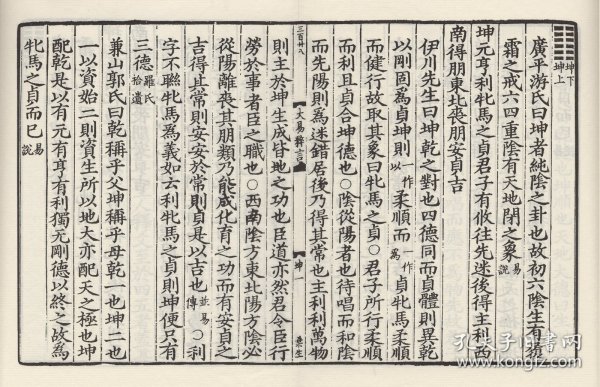 坤下
坤上
廣平游氏曰坤者純陰之卦也故初六陰生有履
霜之戒六四重陰有天地閉之象易說
坤元亨利牝馬之貞君子有攸往先迷後得主利西
南得朋東北喪朋安貞吉
伊川先生曰坤乾之對也四德同而貞體則異乾
以剛固爲貞坤則一作以柔順而一作爲貞牝馬柔順
而健行故取其象曰牝馬之貞○君子所行柔順
而利且貞合坤德也○陰從陽者也待唱而和陰
而先陽則爲迷錯居後乃得其常也主利利萬物
三百廿八
大易粹言
坤一
則主於坤生成皆地之功也臣道亦然君令臣行
勞於事者臣之職也○西南陰方東北陽方陰必
從陽離喪其朋類乃能成化育之功而有安貞之
吉得其常則安安於常則貞是以吉也並易傳○利
字不聯牝馬爲義如云利牝馬之貞則坤便只有
三德羅氏拾遺
兼山郭氏曰乾稱乎父坤稱乎母乾一也坤二也
一以資始二則資生所以地大亦配天之極也坤
配乾是以有元有亨有利獨无剛德以終之故爲
牝馬之貞而已易說